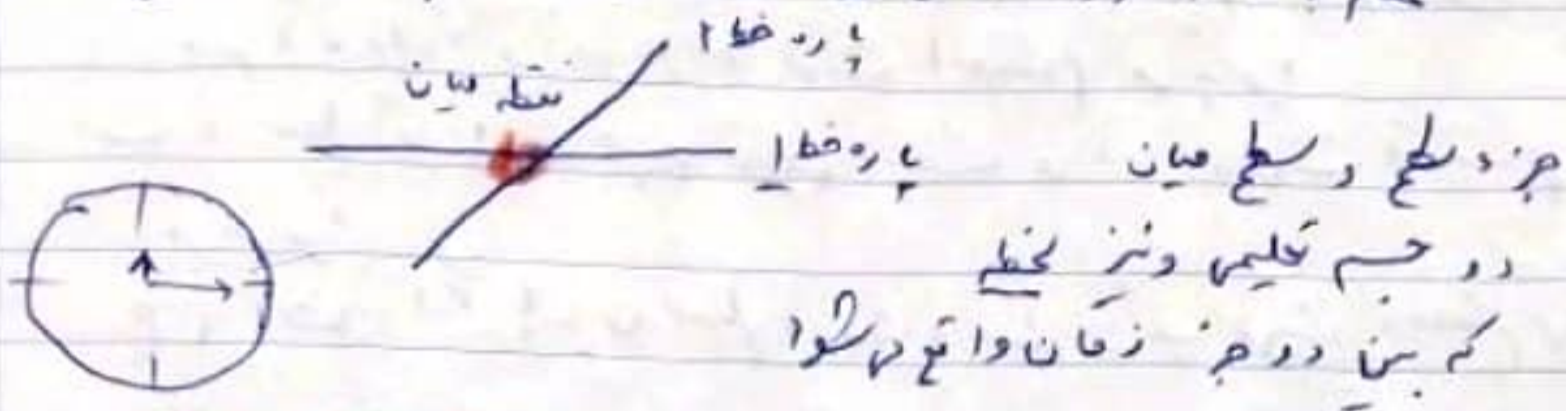 پاره خط ۲
نقطه میان
پاره خط ۱
جزء سطح و سطح میان
دو جسم تعلیمی و نیز لحظه
که بین دو جزء زمان واقع می‌شود